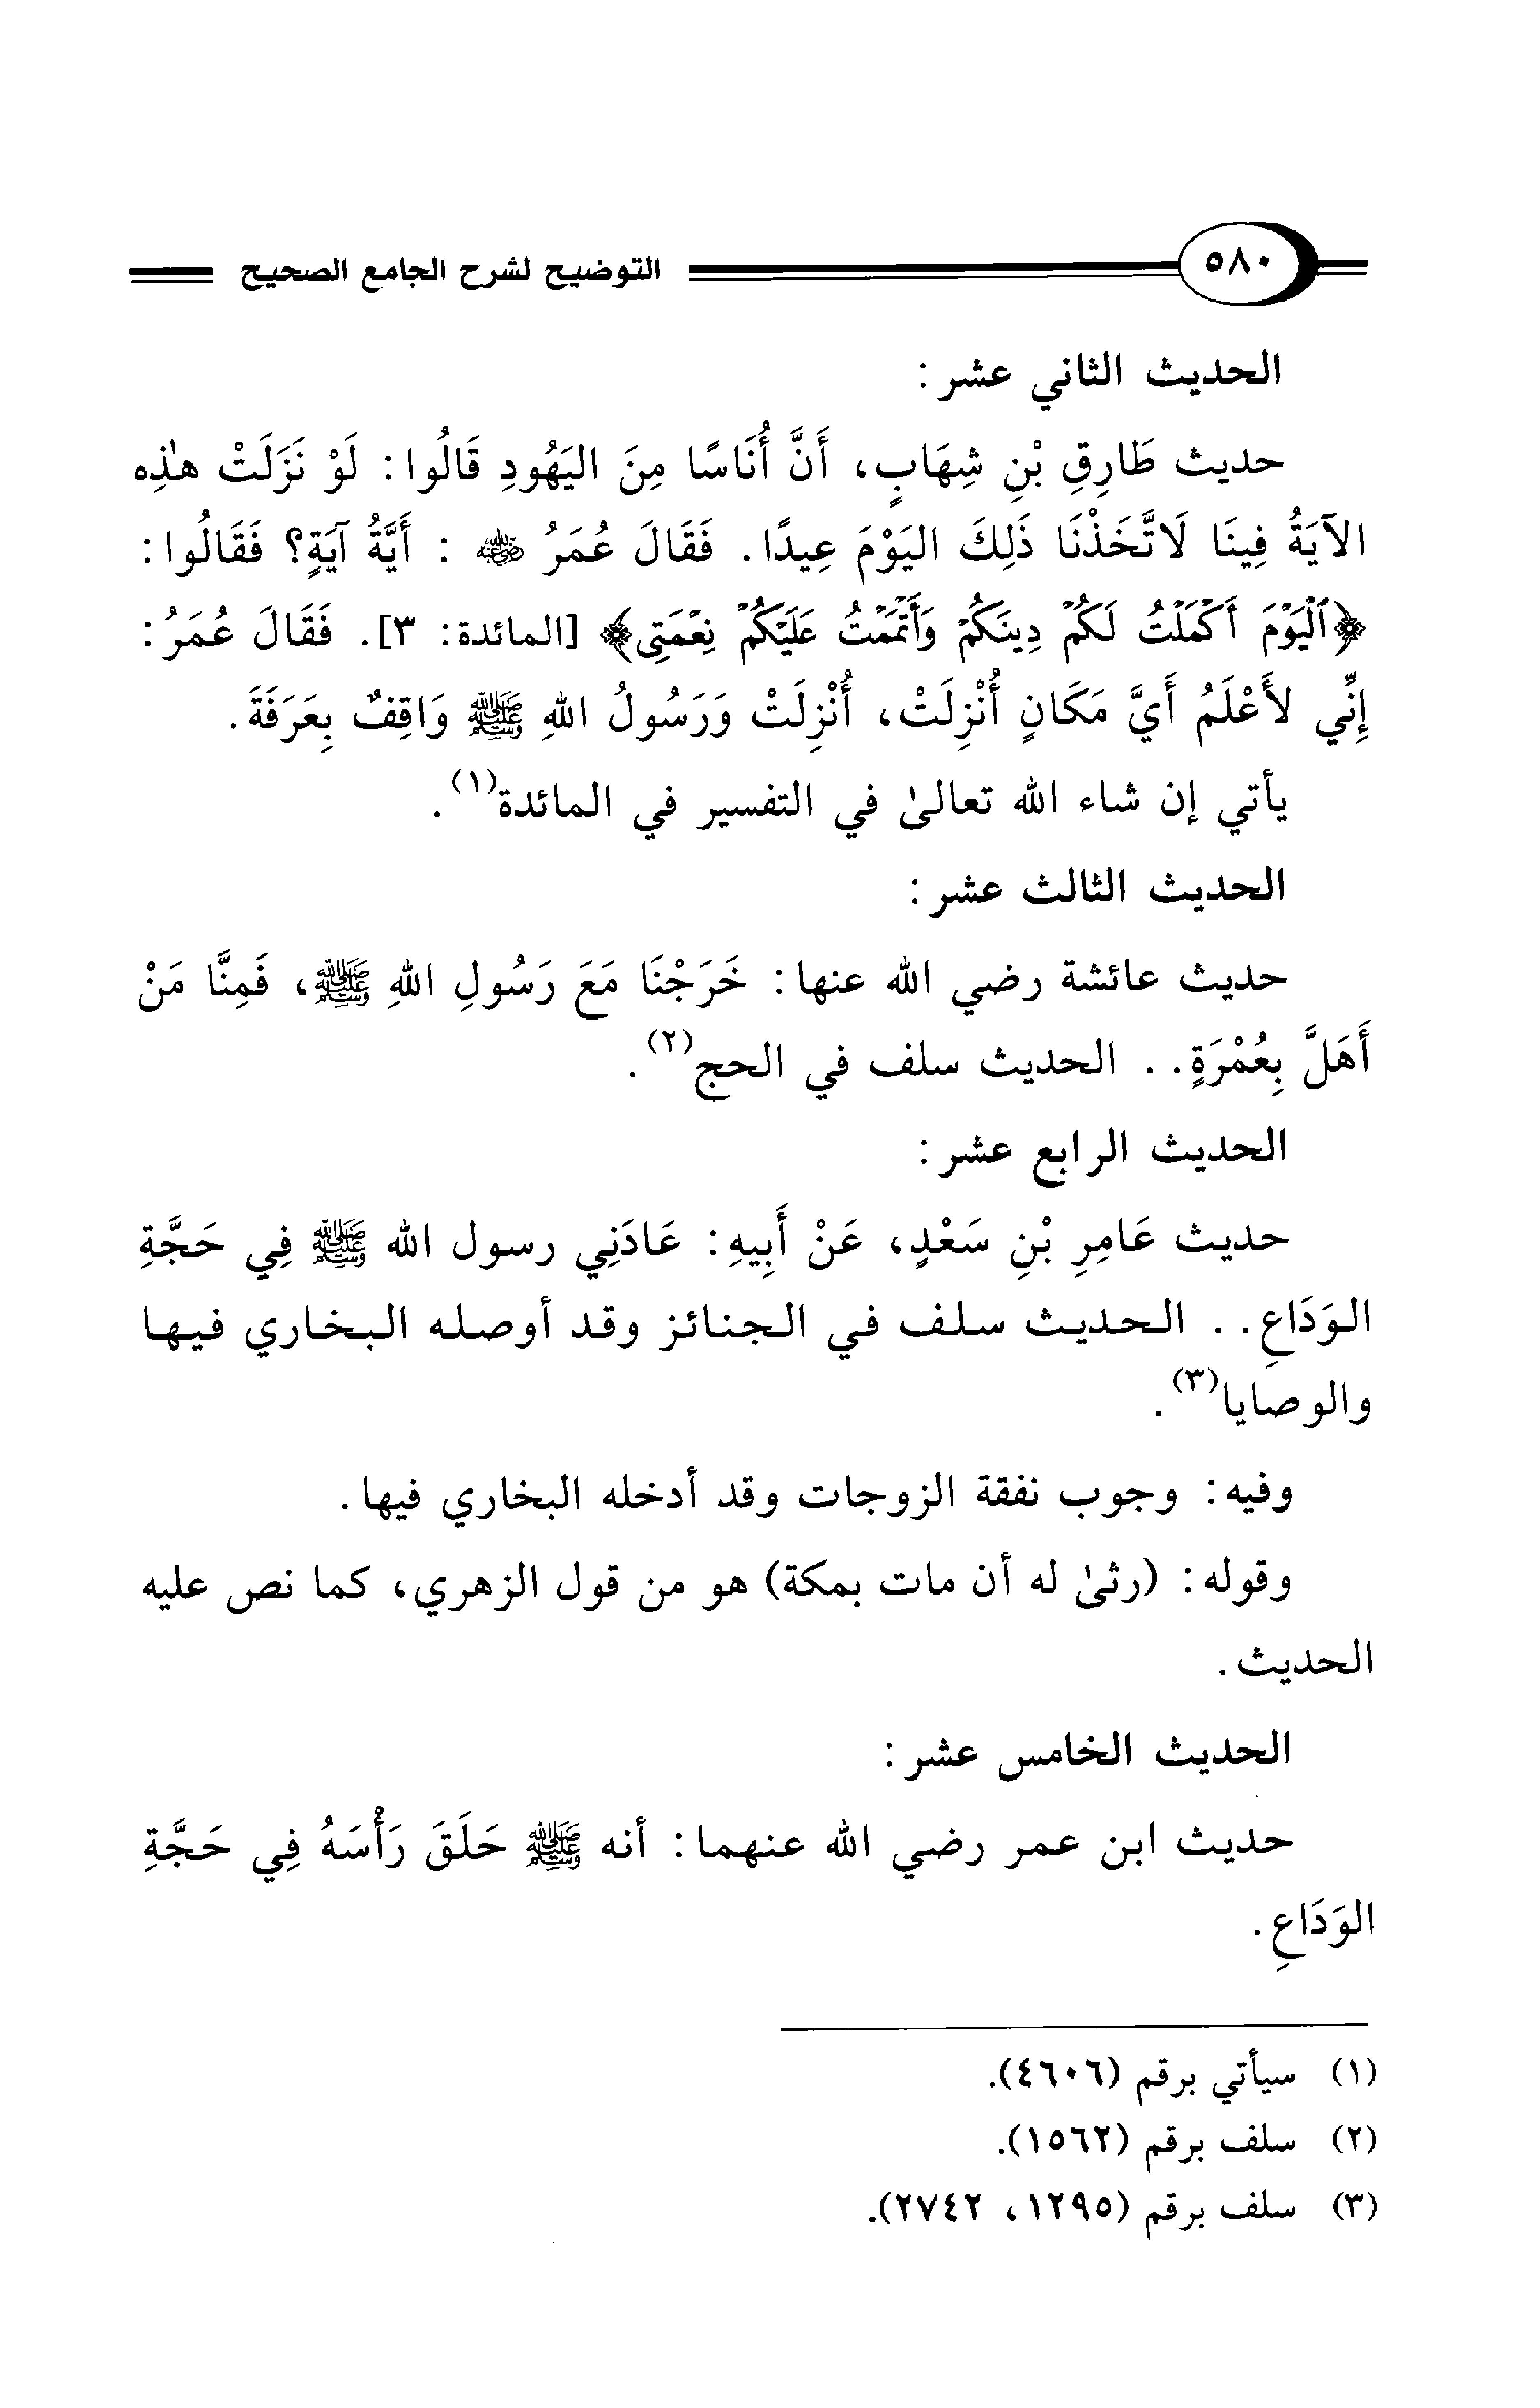 ٥٨٠ التوضيح لشرح الجامع الصحيح
الحديث الثاني عشر:
حديث طَارِقِ بْنِ شِهَابٍ، أَنَّ أُنَاسًا مِنَ اليَهُودِ قَالُوا: لَوْ نَزَلَتْ هٰذِه
الآيَةُ فِينَا لَاتَّخَذْنَا ذَلِكَ اليَوْمَ عِيدًا. فَقَالَ عُمَرُ رضي الله عنه: أَيَّةُ آيَةٍ؟ فَقَالُوا:
﴿ٱلْيَوْمَ أَكْمَلْتُ لَكُمْ دِينَكُمْ وَأَتْمَمْتُ عَلَيْكُمْ نِعْمَتِى﴾ [المائدة: ٣]. فَقَالَ عُمَرُ:
إِنِّي لأَعْلَمُ أَيَّ مَكَانٍ أُنْزِلَتْ، أُنْزِلَتْ وَرَسُولُ اللهِ ﷺ وَاقِفٌ بِعَرَفَةَ.
يأتي إن شاء الله تعالىٰ في التفسير في المائدة(١).
الحديث الثالث عشر:
حديث عائشة رضي الله عنها: خَرَجْنَا مَعَ رَسُولِ اللهِ ﷺ، فَمِنَّا مَنْ
أَهَلَّ بِعُمْرَةٍ.. الحديث سلف في الحج(٢).
الحديث الرابع عشر:
حديث عَامِرِ بْنِ سَعْدٍ، عَنْ أَبِيهِ: عَادَنِي رسول الله ﷺ فِي حَجَّةِ
الوَدَاعِ.. الحديث سلف في الجنائز وقد أوصله البخاري فيها
والوصايا(٣).
وفيه: وجوب نفقة الزوجات وقد أدخله البخاري فيها.
وقوله: (رثىٰ له أن مات بمكة) هو من قول الزهري، كما نص عليه
الحديث.
الحديث الخامس عشر:
حديث ابن عمر رضي الله عنهما: أنه ﷺ حَلَقَ رَأْسَهُ فِي حَجَّةِ
الوَدَاعِ.
(١) سيأتي برقم (٤٦٠٦).
(٢) سلف برقم (١٥٦٢).
(٣) سلف برقم (١٢٩٥، ٢٧٤٢).